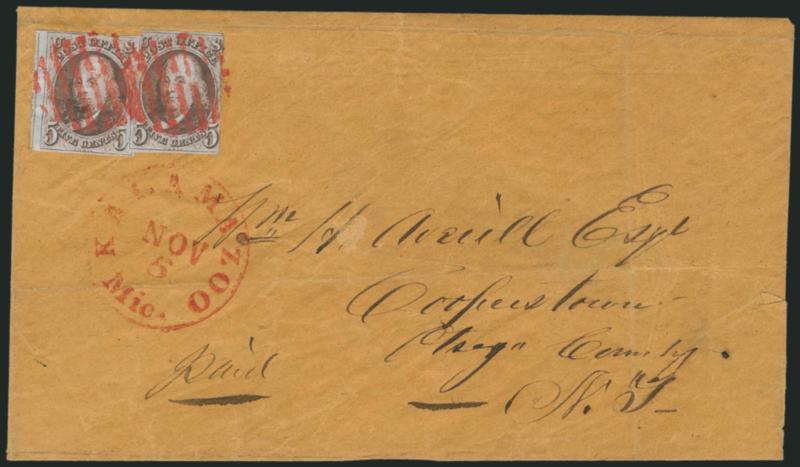 POST OFFICE
FIVE CENTS
5 5
POST OFFICE
FIVE CENTS
5 5
KALAMAZOO
NOV
6
Mic.
Wm H. Averill Esqr
Cooperstown
Otsego County.
N.Y.
Paid